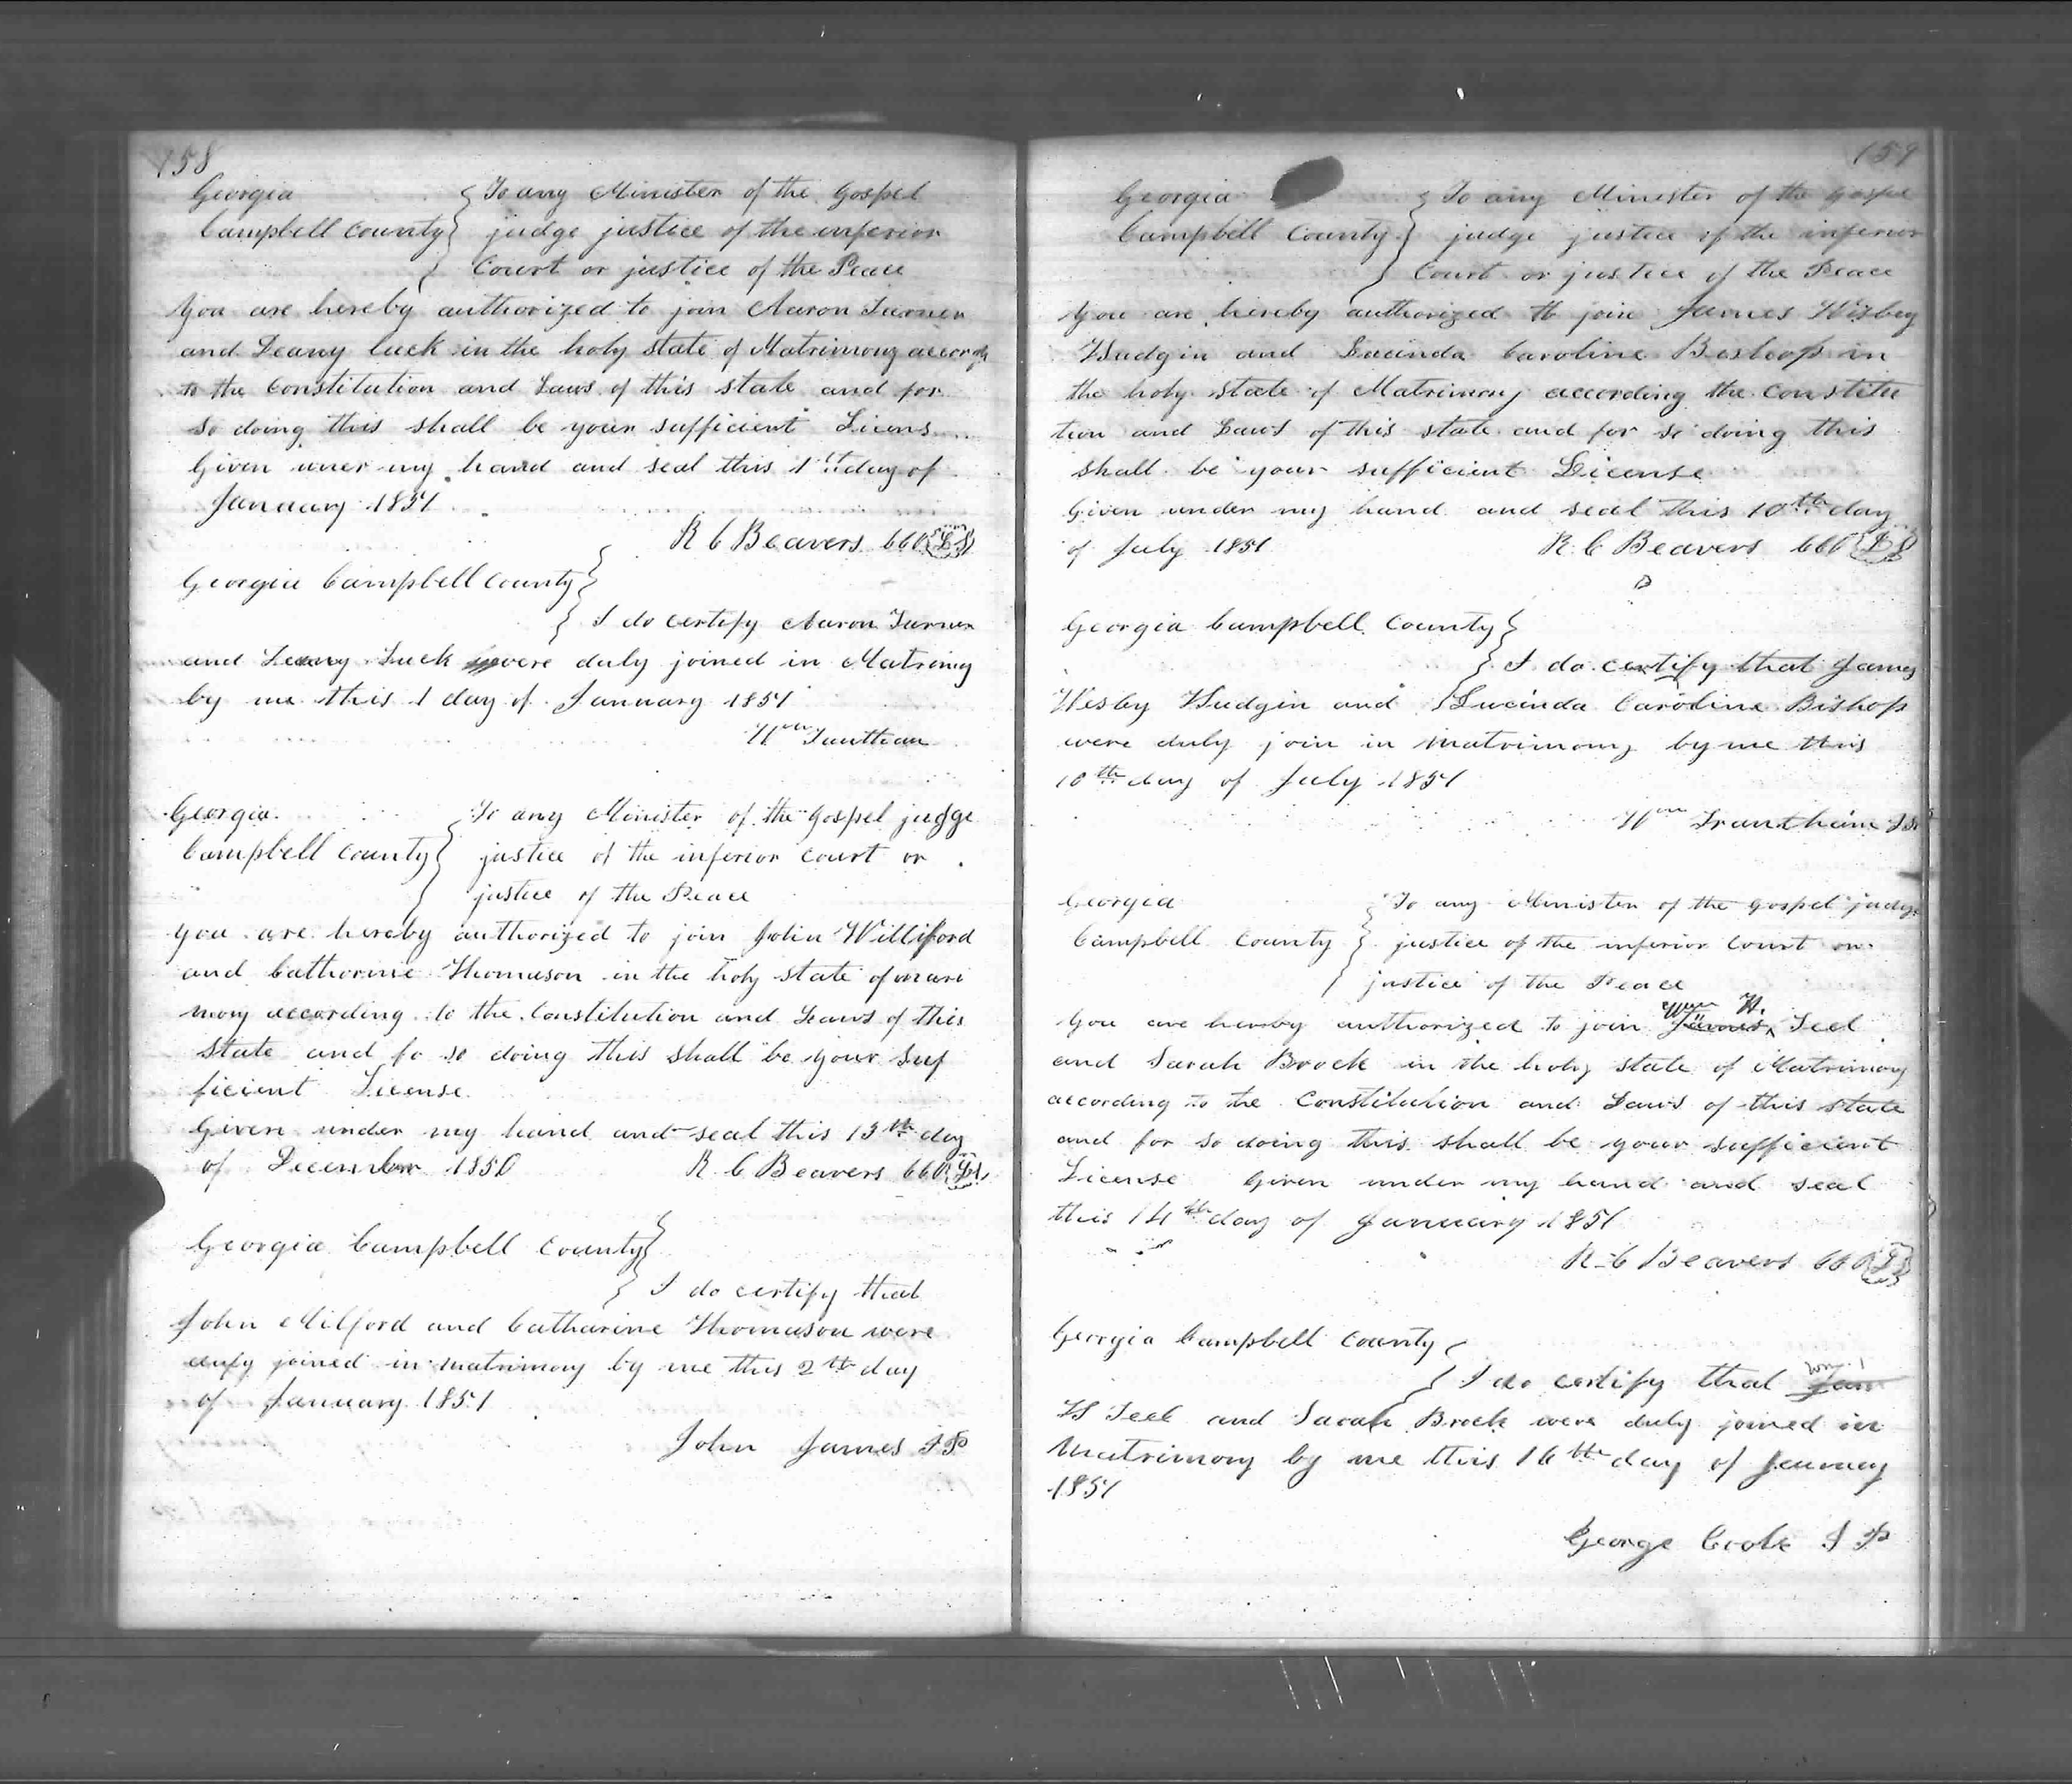 158
Georgia
Campbell County
To any Minister of the Gospel
judge justice of the inferior
Court or justice of the Peace
You are hereby authorized to join Aaron Turner
and Leany Luck in the holy state of Matrimony
to the Constitution and Laws of this state and for
so doing this shall be your sufficient Licens
Given uner my hand and seal this 1st day of
January 1851
R C Beavers CCO LS
Georgia Campbell County
I do certify Aaron Turner
and Leany Luck were duly joined in Matrimy
by me this 1 day of January 1851
Wm
Georgia
Campbell County
To any Minister of the Gospel judge
justice of the inferior Court or
justice of the Peace
You are hereby authorized to join John Williford
and Catharine Thomason in the holy state of mari
mony according to the Constitution and Laws of this
State and fo so doing this shall be your suf
ficient License
Given under my hand and seal this 13th day
of December 1850
R. C Beavers CCO LS
Georgia Campbell County
I do certify that
John Milford and Catharine Thomason were
duly joined in matrimony by me this 2th day
of January 1851
John James J P
159
Georgia
Campbell County
To any Minister of the Gospel
judge justice of the inferior
Court or justice of the Peace
You are hereby authorized to join James Wisbey
Hudgin and Lucinda Caroline Bishop in
the holy state of Matrimony according the Constitu
tion and Laws of this state and for so doing this
shall be your sufficient License
Given under my hand and seal this 10th day
of July 1851
R. C Beavers CCO LS
Georgia Campbell County
I do certify that James
Wesby Hudgin and Lucinda Caroline Bishop
were duly join in matrimony by me this
10th day of July 1851
Wm Trantham
Georgia
Campbell County
To any Minister of the Gospel judge
justice of the inferior Court or
justice of the Peace
Wm H.
You are hereby authorized to join James Teel
and Sarah Brock in the holy state of Matrimony
according to the Constitution and Laws of this state
and for so doing this shall be your sufficient
License Given under my hand and seal
this 14th day of January 1851
R. C Beavers CCO LS
Georgia Campbell County
Wm
I do certify that Jam
H Teel and Sarah Brock were duly joined in
Matrimony by me this 16th day of January
1851
George Cook J P